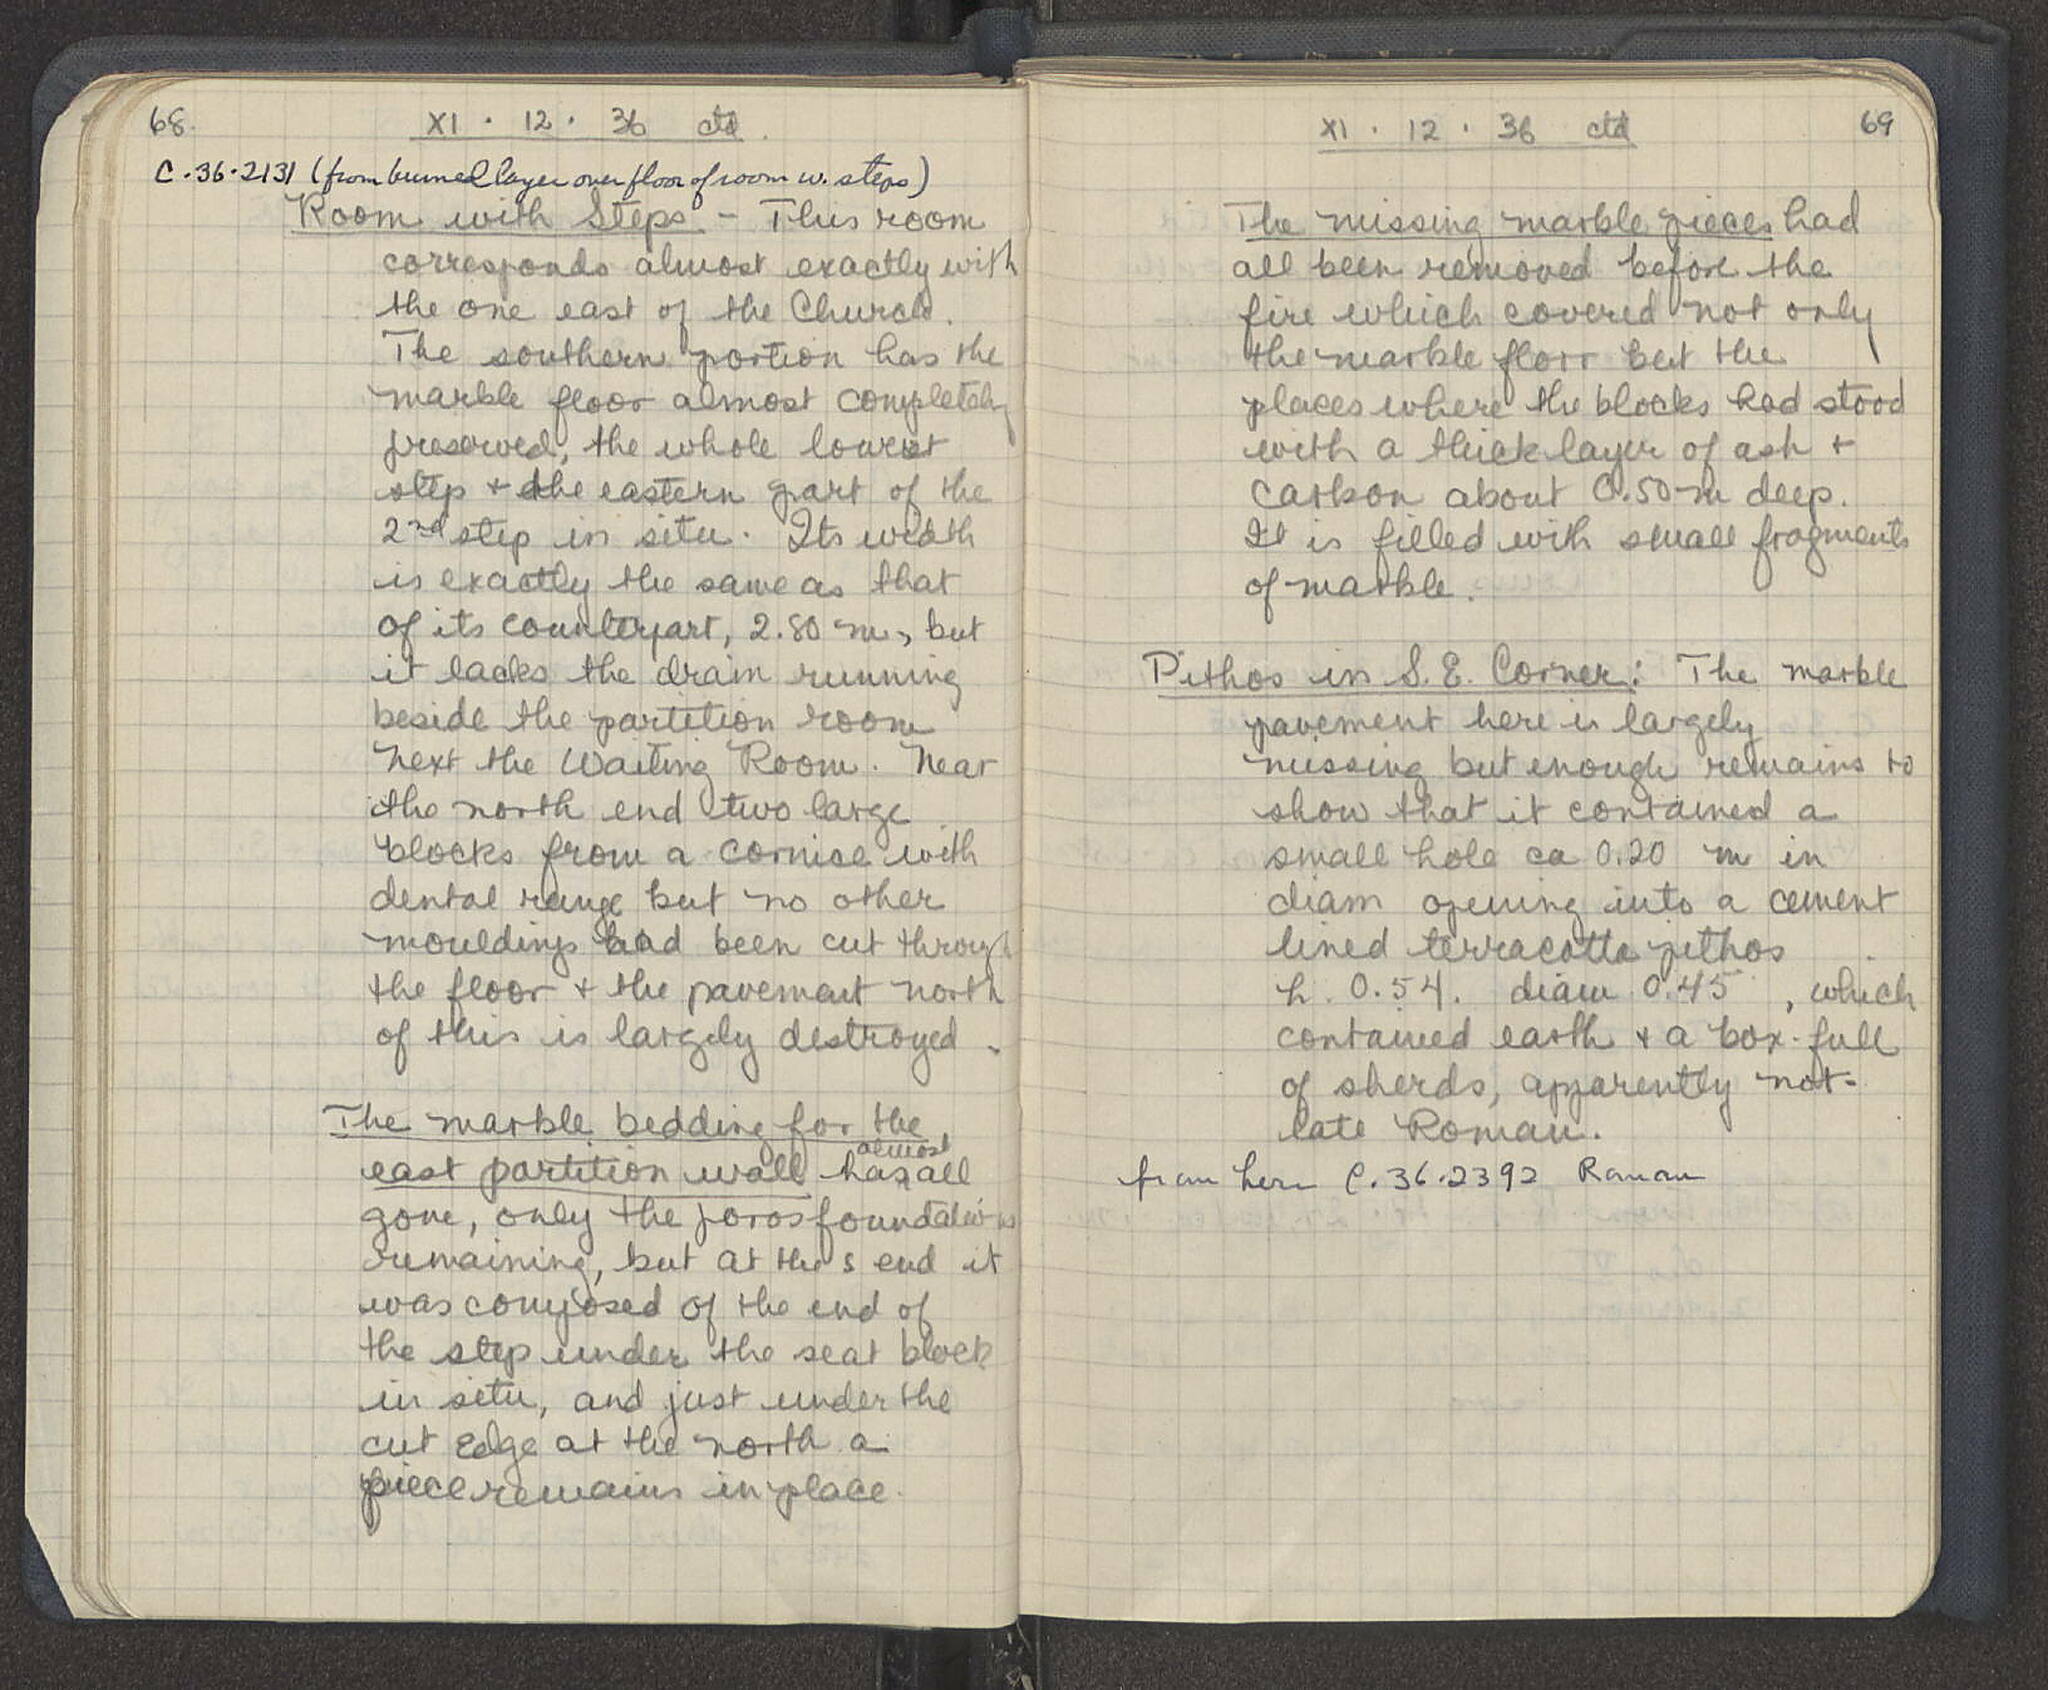 68.
XI · 12 · 36 ctd.
C.36.2131 (from burned layer over floor of room w. steps)
Room with Steps - This room
corresponds almost exactly with
the one east of the Church.
The southern portion has the
marble floor almost completely
preserved, the whole lowest
step + the eastern part of the
2nd step in situ. Its width
is exactly the same as that
of its counterpart, 2.80 m, but
it lacks the drain running
beside the partition room
next the Waiting Room. Near
the north end two large
blocks from a cornice with
dental range but no other
mouldings had been cut through
the floor + the pavement north
of this is largely destroyed.
The marble bedding for the
almost
east partition wall has all
gone, only the poros foundations
remaining, but at the s end it
was composed of the end of
the step under the seat block
in situ, and just under the
cut edge at the north a
piece remains in place.
XI · 12 · 36 ctd
69
The missing marble pieces had
all been removed before the
fire which covered not only
the marble floor but the
places where the blocks had stood
with a thick layer of ash +
carbon about 0.50 m deep.
It is filled with small fragments
of marble.
Pithos in S.E. Corner: The marble
pavement here is largely
missing but enough remains to
show that it contained a
small hole ca 0.20 m in
diam opening into a cement
lined terracotta pithos
h. 0.54. diam 0.45 , which
contained earth + a box-full
of sherds, apparently not-
late Roman.
from here C.36.2392 Roman